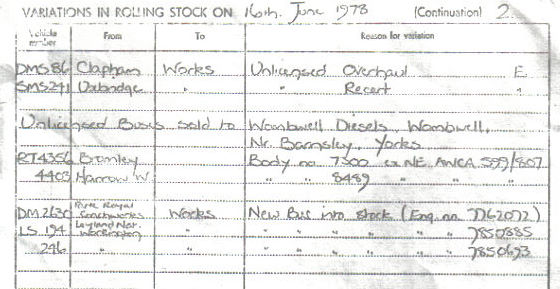 VARIATIONS IN ROLLING STOCK ON 16th. June 1978 (Continuation) 2.
Vehicle number From To Reason for variation
DMS 86 Clapham Works Unlicensed Overhaul E
SMS 241 Uxbridge " " Recert "
Unlicensed Buses sold to Wombwell Diesels, Wombwell,
Nr. Barnsley, Yorks
RT4356 Bromley Body no 7300 ex NE. AWCA 599/807
4403 Harrow W. " " 8489 " " " "
DM2630 Park Royal Coachworks Works New Bus into stock (Eng. no. 7762072)
LS 194 Leyland Nat. Workington " " " " " " " 7850885
246 " " " " " " " " 7850693